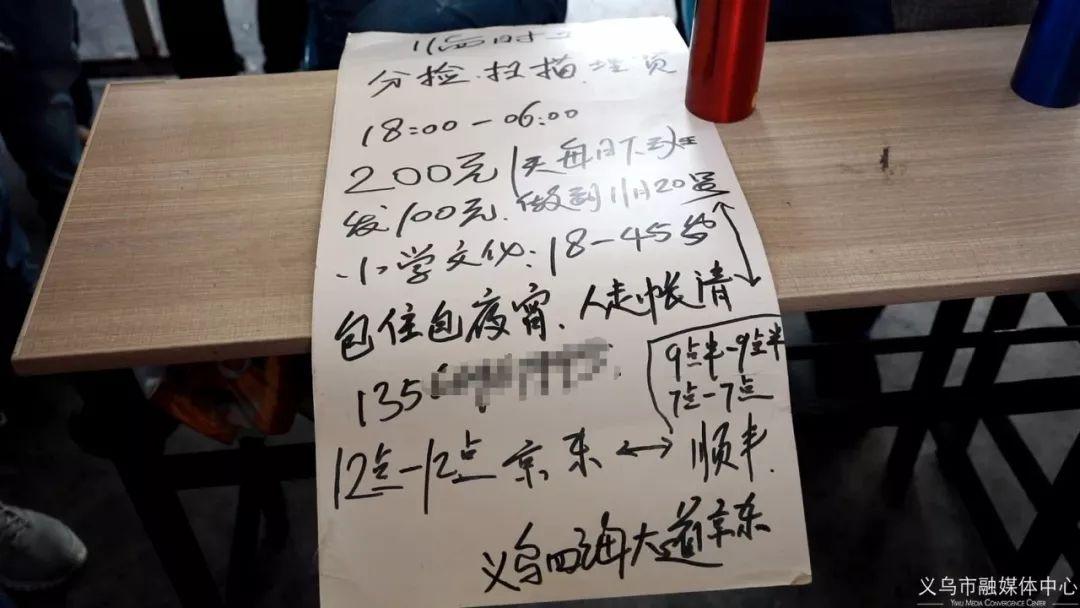 分捡.扫描.理货
18:00-06:00
200元/天每日下班
发100元.做到11月20号
小学文化:18-45岁
包住包夜宵.人走帐清
135
9点半-9点半
7点-7点
12点-12点京东↔顺丰.
义乌四海大道京东
义乌市融媒体中心
YIWU MEDIA CONVERGENCE CENTER